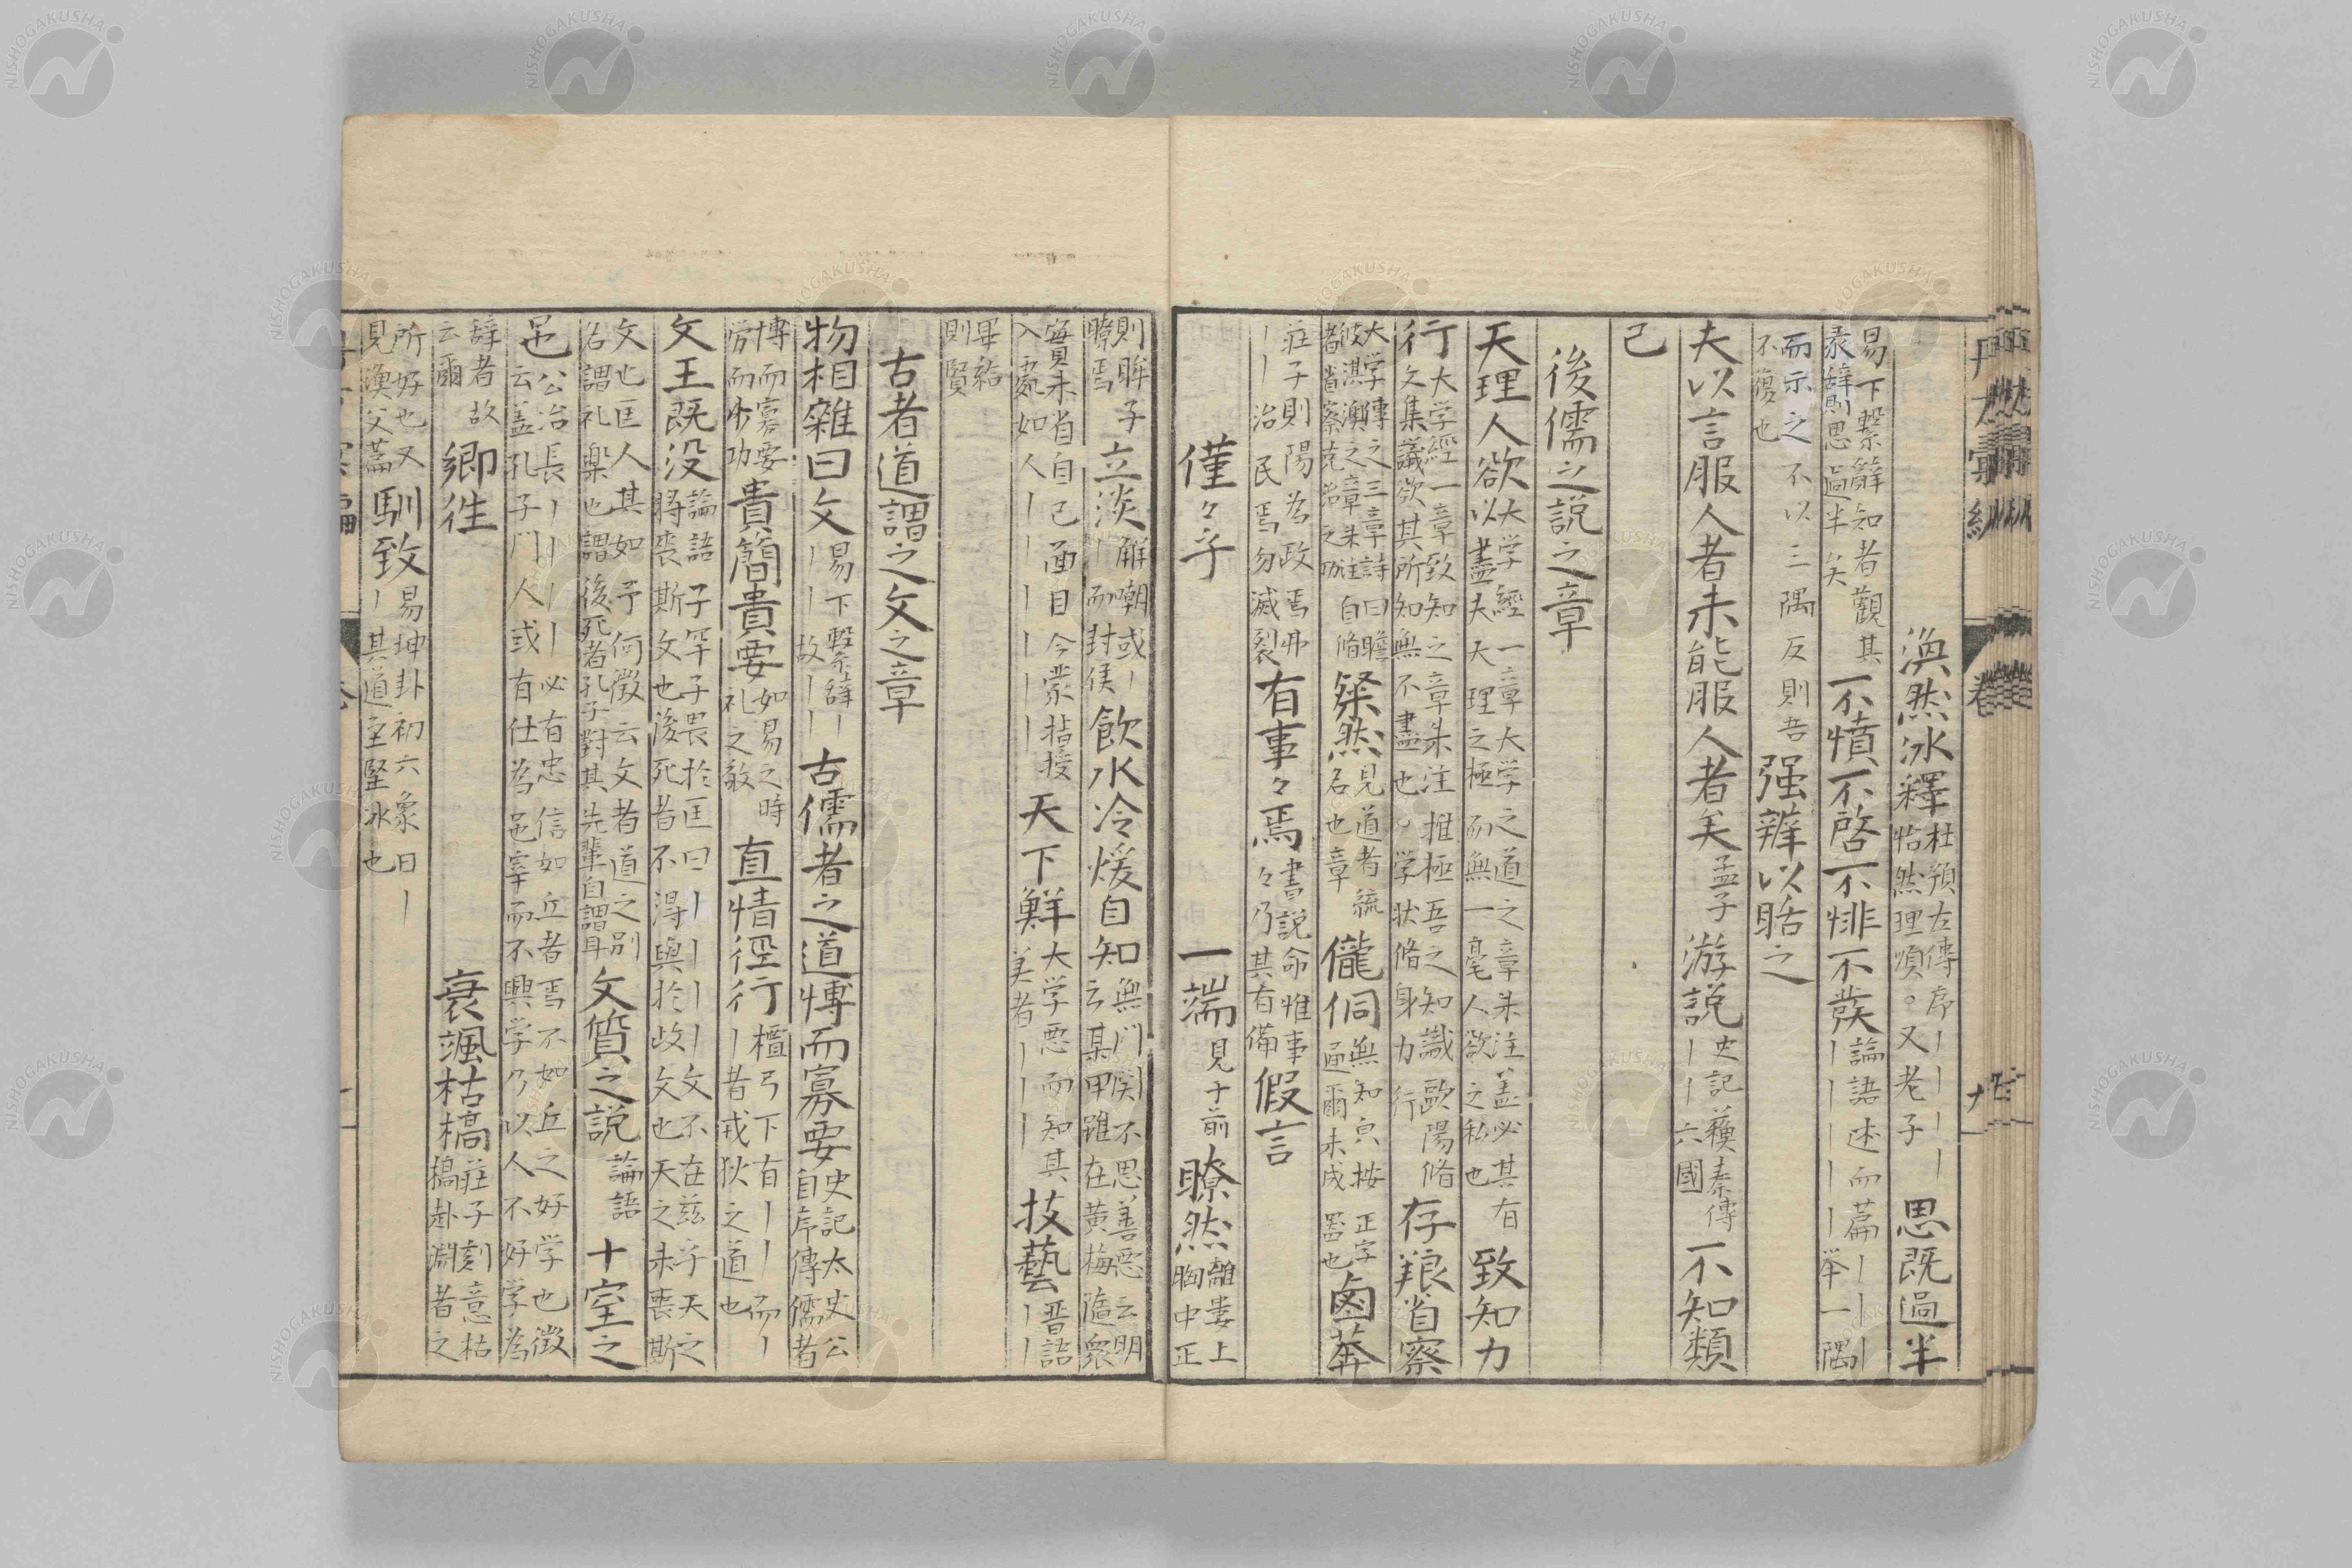 渙然冰釋 杜預左傳序丨丨丨丨 怡然理順。又老子 思既過半
易下繫辭知者觀其 彖辭則思過半矣 不憤不啓不悱不發 論語述而篇丨丨丨 丨丨丨丨丨举一隅
而示之不以三隅反則吾 不復也 强辨以聒之
夫以言服人者未能服人者矣 孟子 游説 史記蘓秦傳 丨丨六國 不知類
己
後儒之説之章
天理人欲以 大学經一章大学之道之章朱注盖必其有 盡夫天理之極而無一毫人欲之私也 致知力
行 大学經一章致知之章朱注推極吾之知識歐陽脩 文集議欲其所知無不盡也。学状脩身力行 存養省察
大学傳之三章詩曰瞻 彼淇澳之章朱注自脩 者省察克治之功 粲然 見道者統 名也章 儱侗 無知皃按正字 通爾未成器也 鹵莽
莊子則陽為政焉弗 丨丨治民焉勿滅裂 有事々焉 書説命惟事 々乃其有備 假言
僅々乎 一端 見于前 瞭然 離婁上 胸中正
則眸子 瞭焉 立淡 解嘲或丨 丨而封侯 飲水冷煖自知 無門関不思善悪云明 云某甲雖在黄梅隨衆
實未省自己面目今蒙指授 入處如人丨丨丨丨丨丨 天下鮮 大学悪而知其 美者丨丨丨 技藝 晋語 丨丨
畢給 則賢
古者道謂之文之章
物相雜曰文 易下繋辞丨 丨丨故丨丨 古儒者之道博而寡要 史記太史公 自序傳儒者
博而寡要 労而少功 貴簡貴要 如易之時 礼之敬 直情徑行 檀弓下有丨丨而丨 丨者戎狄之道也
文王既没 論語子罕子畏於匡曰丨丨丨丨文不在茲乎天之 將喪斯文也後死者不得與於此文也天之未喪斯
文也匡人其如予何徴云文者道之別 名謂礼樂也謂後死者孔子對其先輩自謂耳 文質之説 論語 十室之
邑 公冶長丨丨丨丨必有忠信如丘者焉不如丘之好学也徴 云盖孔子門人或有仕為邑宰而不興学乃以人不好学為
辞者故 云爾 鄉徃 衰颯枯槁 莊子刻意枯 槁赴淵者之
所好也又 見漁父篇 馴致 易坤卦初六象曰丨 丨其道至堅冰也